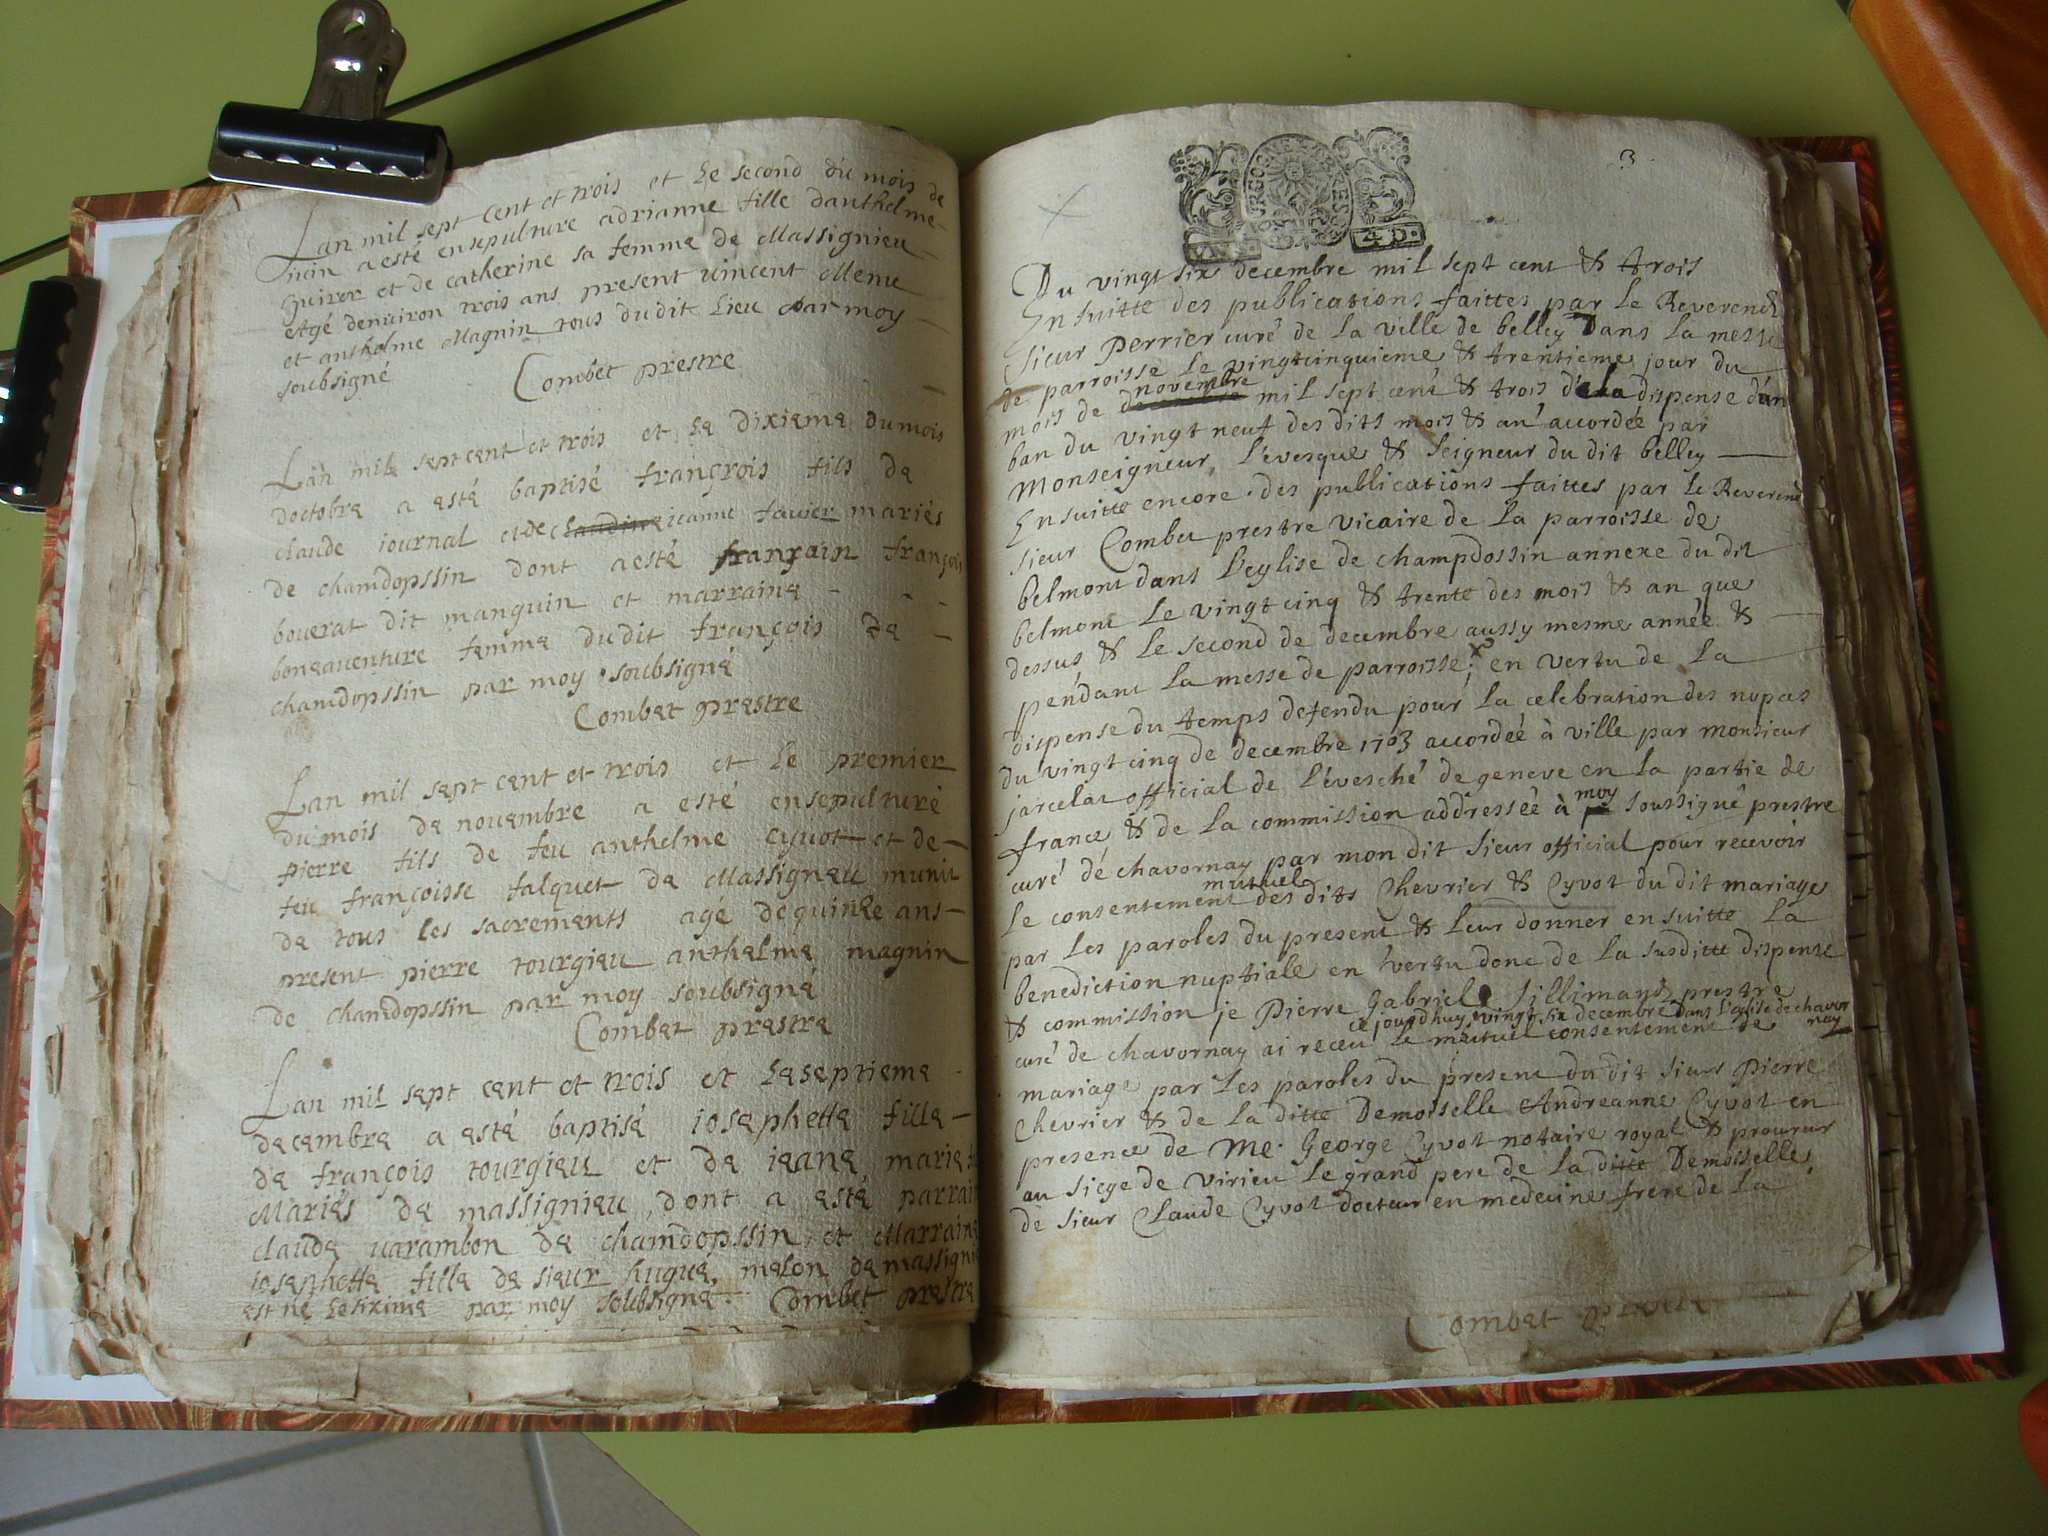 Lan mil sept cent et trois et Le second du mois de
iuin a esté ensepulture adrianne fille danthelme
et de catherine sa femme de Massignieu
Agé denuiron trois ans present vincent
et anthelme Magnin tous dudit Lieu par moy
soubsigné
Combet prestre
Lan mile sept cent et trois et Le dixieme du mois
doctobre a esté baptisé françois fils de
claude iournal et de claudine ieanne fauier mariés
de chamdopssin dont a esté franrain françois
bouerat dit manguin et marraine
boneauenture femme dudit françois de
chamdopssin par moy soubsigné
Combet prestre
Lan mil sept cent et trois et Le premier
du mois de nouembre a esté ensepulturé
pierre fils de feu anthelme cyuot et de
feu françoisse falquet de Massigneu munit
de tous les sacrements agé de quinze ans
present pierre tourgieu anthelme magnin
de chamdopssin par moy soubsigné
Combet prestre
Lan mil sept cent et trois et Le septieme
decembre a esté baptisé iosephette fille
de françois tourgieu et de ieane marie
Mariés de massignieu dont a esté parrain
claude uarambon de chamdopssin et Marraine
iosephette fille de sieur hugue melon de massigni
est né Le sixime par moy soubsigné Combet prestre
3
4 D.
Du vingt six decembre mil sept cent & trois
Ensuitte des publications faittes par le Reverend
sieur Perrier curé de la ville de belley Dans la messe
de parroisse le vingtcinquieme & trentieme jour du
novembre
mois de mil sept cent & trois de la dispense d'un
ban du vingt neuf des dits mois & an accordée par
Monseigneur l'evesque & seigneur du dit belley
Ensuitte encore des publications faittes par le Reverend
sieur Combet prestre vicaire de la parroisse de
belmont dans l'eglise de champdossin annexe du dit
belmont le vingt cinq & trente des mois & an que
dessus & le second de decembre aussy mesme année &
pendant la messe de parroisse; en vertu de la
dispense du temps defendu pour la celebration des nopces
du vingt cinq de decembre 1703 accordéé à ville par monsieur
jarcelat official de l'évesché de geneve en la partie de
france & de la commission addresséé à moy soussigné prestre
curé de chavornay par mon dit sieur official pour recevoir
mutuel
le consentement des dits Chevrier & Cyvot du dit mariage
par les paroles du present & leur donner ensuitte la
benediction nuptiale en vertu donc de la susditte dispense
& commission je Pierre Gabriel Sillimand prestre
ce jourdhuy vingt six decembre dans l'eglise de chavor
nay
curé de chavornay ai receu le mutuel consentement de
mariage par les paroles du present du dit sieur Pierre
Chevrier & de la ditte Demoiselle Andreanne Cyvot en
presence de Me. George Cyvot notaire royal & procureur
au siege de virieu le grand pere de la ditte Demoiselle
de sieur Claude Cyvot docteur en medecine frere de la
Combet prestre